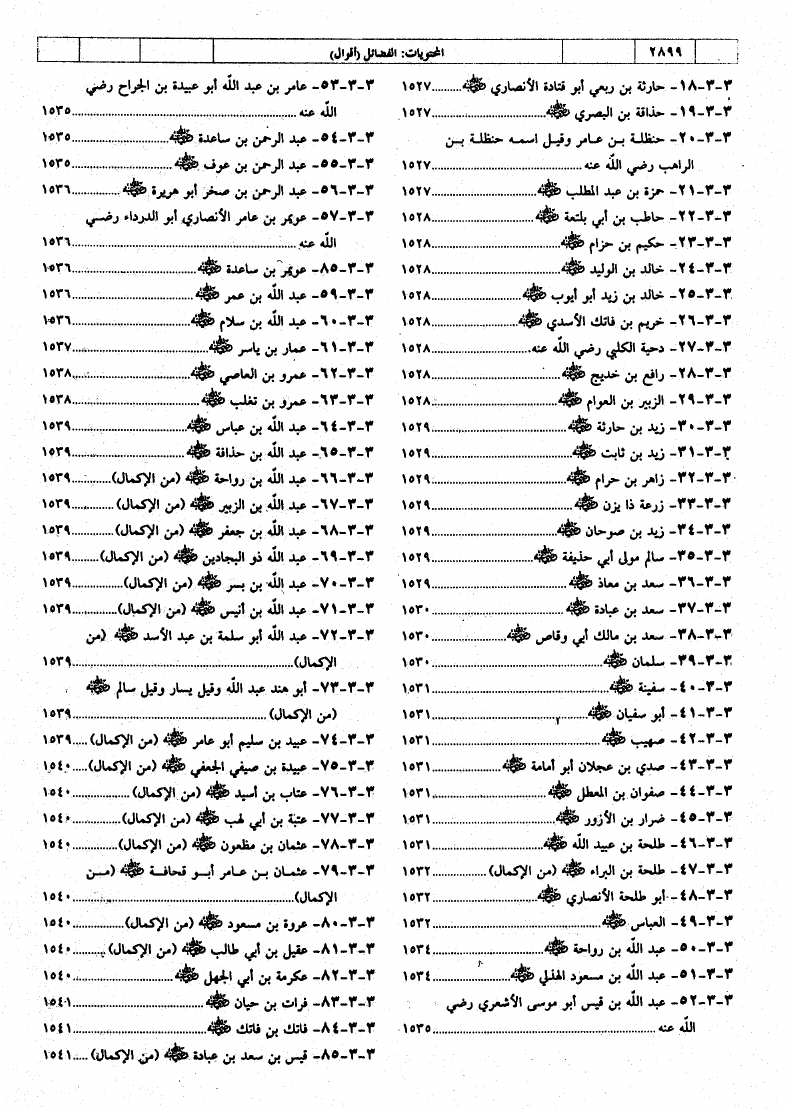 ٢٨٩٩
المحتويات: الفضائل (أقوال)
٣-٣-١٨- حارثة بن ربعي أبو قتادة الأنصاري ﷺ.........١٥٢٧
٣-٣-١٩- حذافة بن البصري ﷺ.........١٥٢٧
٣-٣-٢٠- حنظلة بن عامر وقيل اسمه حنظلة بن
الراهب رضي الله عنه.........١٥٢٧
٣-٣-٢١- حمزة بن عبد المطلب ﷺ.........١٥٢٧
٣-٣-٢٢- حاطب بن أبي بلتعة ﷺ.........١٥٢٨
٣-٣-٢٣- حكيم بن حزام ﷺ.........١٥٢٨
٣-٣-٢٤- خالد بن الوليد ﷺ.........١٥٢٨
٣-٣-٢٥- خالد بن زيد أبو أيوب ﷺ.........١٥٢٨
٣-٣-٢٦- خريم بن فاتك الأسدي ﷺ.........١٥٢٨
٣-٣-٢٧- دحية الكلبي رضي الله عنه.........١٥٢٨
٣-٣-٢٨- رافع بن خديج ﷺ.........١٥٢٨
٣-٣-٢٩- الزبير بن العوام ﷺ.........١٥٢٨
٣-٣-٣٠- زيد بن حارثة ﷺ.........١٥٢٩
٣-٣-٣١- زيد بن ثابت ﷺ.........١٥٢٩
٣-٣-٣٢- زاهر بن حرام ﷺ.........١٥٢٩
٣-٣-٣٣- زرعة ذا يزن ﷺ.........١٥٢٩
٣-٣-٣٤- زيد بن صوحان ﷺ.........١٥٢٩
٣-٣-٣٥- سالم مولى أبي حذيفة ﷺ.........١٥٢٩
٣-٣-٣٦- سعد بن معاذ ﷺ.........١٥٢٩
٣-٣-٣٧- سعد بن عبادة ﷺ.........١٥٣٠
٣-٣-٣٨- سعد بن مالك أبي وقاص ﷺ.........١٥٣٠
٣-٣-٣٩- سلمان ﷺ.........١٥٣٠
٣-٣-٤٠- سفينة ﷺ.........١٥٣١
٣-٣-٤١- أبو سفيان ﷺ.........١٥٣١
٣-٣-٤٢- صهيب ﷺ.........١٥٣١
٣-٣-٤٣- صدي بن عجلان أبو أمامة ﷺ.........١٥٣١
٣-٣-٤٤- صفوان بن المعطل ﷺ.........١٥٣١
٣-٣-٤٥- ضرار بن الأزور ﷺ.........١٥٣١
٣-٣-٤٦- طلحة بن عبيد الله ﷺ.........١٥٣١
٣-٣-٤٧- طلحة بن البراء ﷺ (من الإكمال).........١٥٣٢
٣-٣-٤٨- أبو طلحة الأنصاري ﷺ.........١٥٣٢
٣-٣-٤٩- العباس ﷺ.........١٥٣٢
٣-٣-٥٠- عبد الله بن رواحة ﷺ.........١٥٣٤
٣-٣-٥١- عبد الله بن مسعود الهذلي ﷺ.........١٥٣٤
٣-٣-٥٢- عبد الله بن قيس أبو موسى الأشعري رضي
الله عنه.........١٥٣٥
٣-٣-٥٣- عامر بن عبد الله أبو عبيدة بن الجراح رضي
الله عنه.........١٥٣٥
٣-٣-٥٤- عبد الرحمن بن ساعدة ﷺ.........١٥٣٥
٣-٣-٥٥- عبد الرحمن بن عوف ﷺ.........١٥٣٥
٣-٣-٥٦- عبد الرحمن بن صخر أبو هريرة ﷺ.........١٥٣٦
٣-٣-٥٧- عويمر بن عامر الأنصاري أبو الدرداء رضي
الله عنه.........١٥٣٦
٣-٣-٨٥- عويمر بن ساعدة ﷺ.........١٥٣٦
٣-٣-٥٩- عبد الله بن عمر ﷺ.........١٥٣٦
٣-٣-٦٠- عبد الله بن سلام ﷺ.........١٥٣٦
٣-٣-٦١- عمار بن ياسر ﷺ.........١٥٣٧
٣-٣-٦٢- عمرو بن العاصي ﷺ.........١٥٣٨
٣-٣-٦٣- عمرو بن تغلب ﷺ.........١٥٣٨
٣-٣-٦٤- عبد الله بن عباس ﷺ.........١٥٣٩
٣-٣-٦٥- عبد الله بن حذافة ﷺ.........١٥٣٩
٣-٣-٦٦- عبد الله بن رواحة ﷺ (من الإكمال).........١٥٣٩
٣-٣-٦٧- عبد الله بن الزبير ﷺ (من الإكمال).........١٥٣٩
٣-٣-٦٨- عبد الله بن جعفر ﷺ (من الإكمال).........١٥٣٩
٣-٣-٦٩- عبد الله ذو البجادين ﷺ (من الإكمال).........١٥٣٩
٣-٣-٧٠- عبد الله بن بسر ﷺ (من الإكمال).........١٥٣٩
٣-٣-٧١- عبد الله بن أنيس ﷺ (من الإكمال).........١٥٣٩
٣-٣-٧٢- عبد الله أبو سلمة بن عبد الأسد ﷺ (من
الإكمال).........١٥٣٩
٣-٣-٧٣- أبو هند عبد الله وقيل يسار وقيل سالم ﷺ
(من الإكمال).........١٥٣٩
٣-٣-٧٤- عبيد بن سليم أبو عامر ﷺ (من الإكمال).....١٥٣٩
٣-٣-٧٥- عبيدة بن صيفي الجعفي ﷺ (من الإكمال).....١٥٤٠
٣-٣-٧٦- عتاب بن أسيد ﷺ (من الإكمال).........١٥٤٠
٣-٣-٧٧- عتبة بن أبي لهب ﷺ (من الإكمال).........١٥٤٠
٣-٣-٧٨- عثمان بن مظعون ﷺ (من الإكمال).........١٥٤٠
٣-٣-٧٩- عثمان بن عامر أبو قحافة ﷺ (من
الإكمال).........١٥٤٠
٣-٣-٨٠- عروة بن مسعود ﷺ (من الإكمال).........١٥٤٠
٣-٣-٨١- عقيل بن أبي طالب ﷺ (من الإكمال).........١٥٤٠
٣-٣-٨٢- عكرمة بن أبي الجهل ﷺ.........١٥٤٠
٣-٣-٨٣- فرات بن حيان ﷺ.........١٥٤١
٣-٣-٨٤- فاتك بن فاتك ﷺ.........١٥٤١
٣-٣-٨٥- قيس بن سعد بن عبادة ﷺ (من الإكمال).....١٥٤١